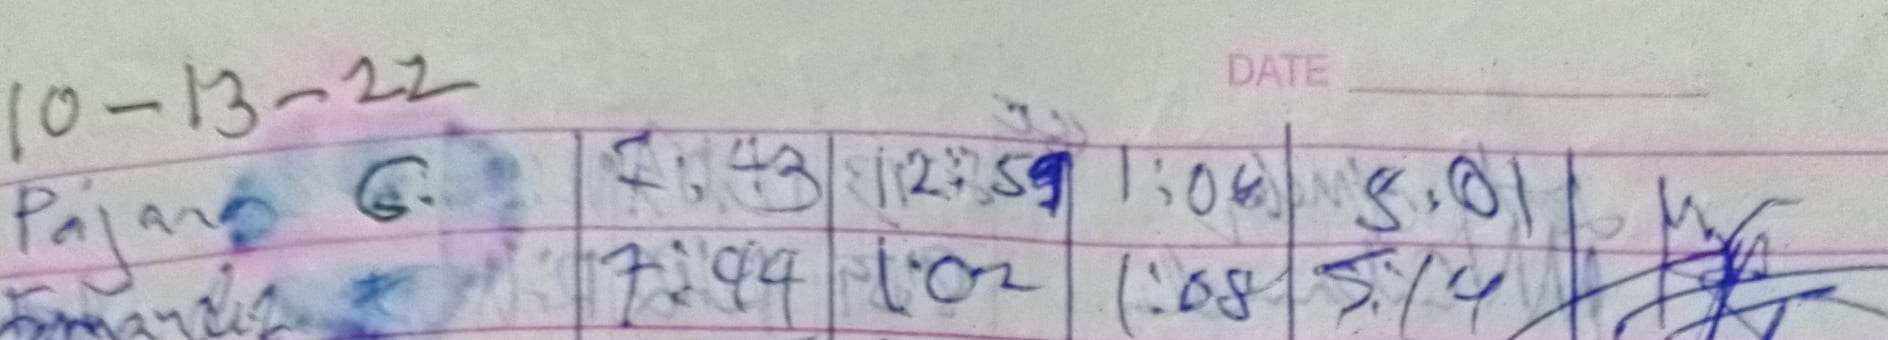 10-13-22
DATE
Pajaro G. 7:43 12:59 1:06 5:01
7:44 1:02 1:08 5:14